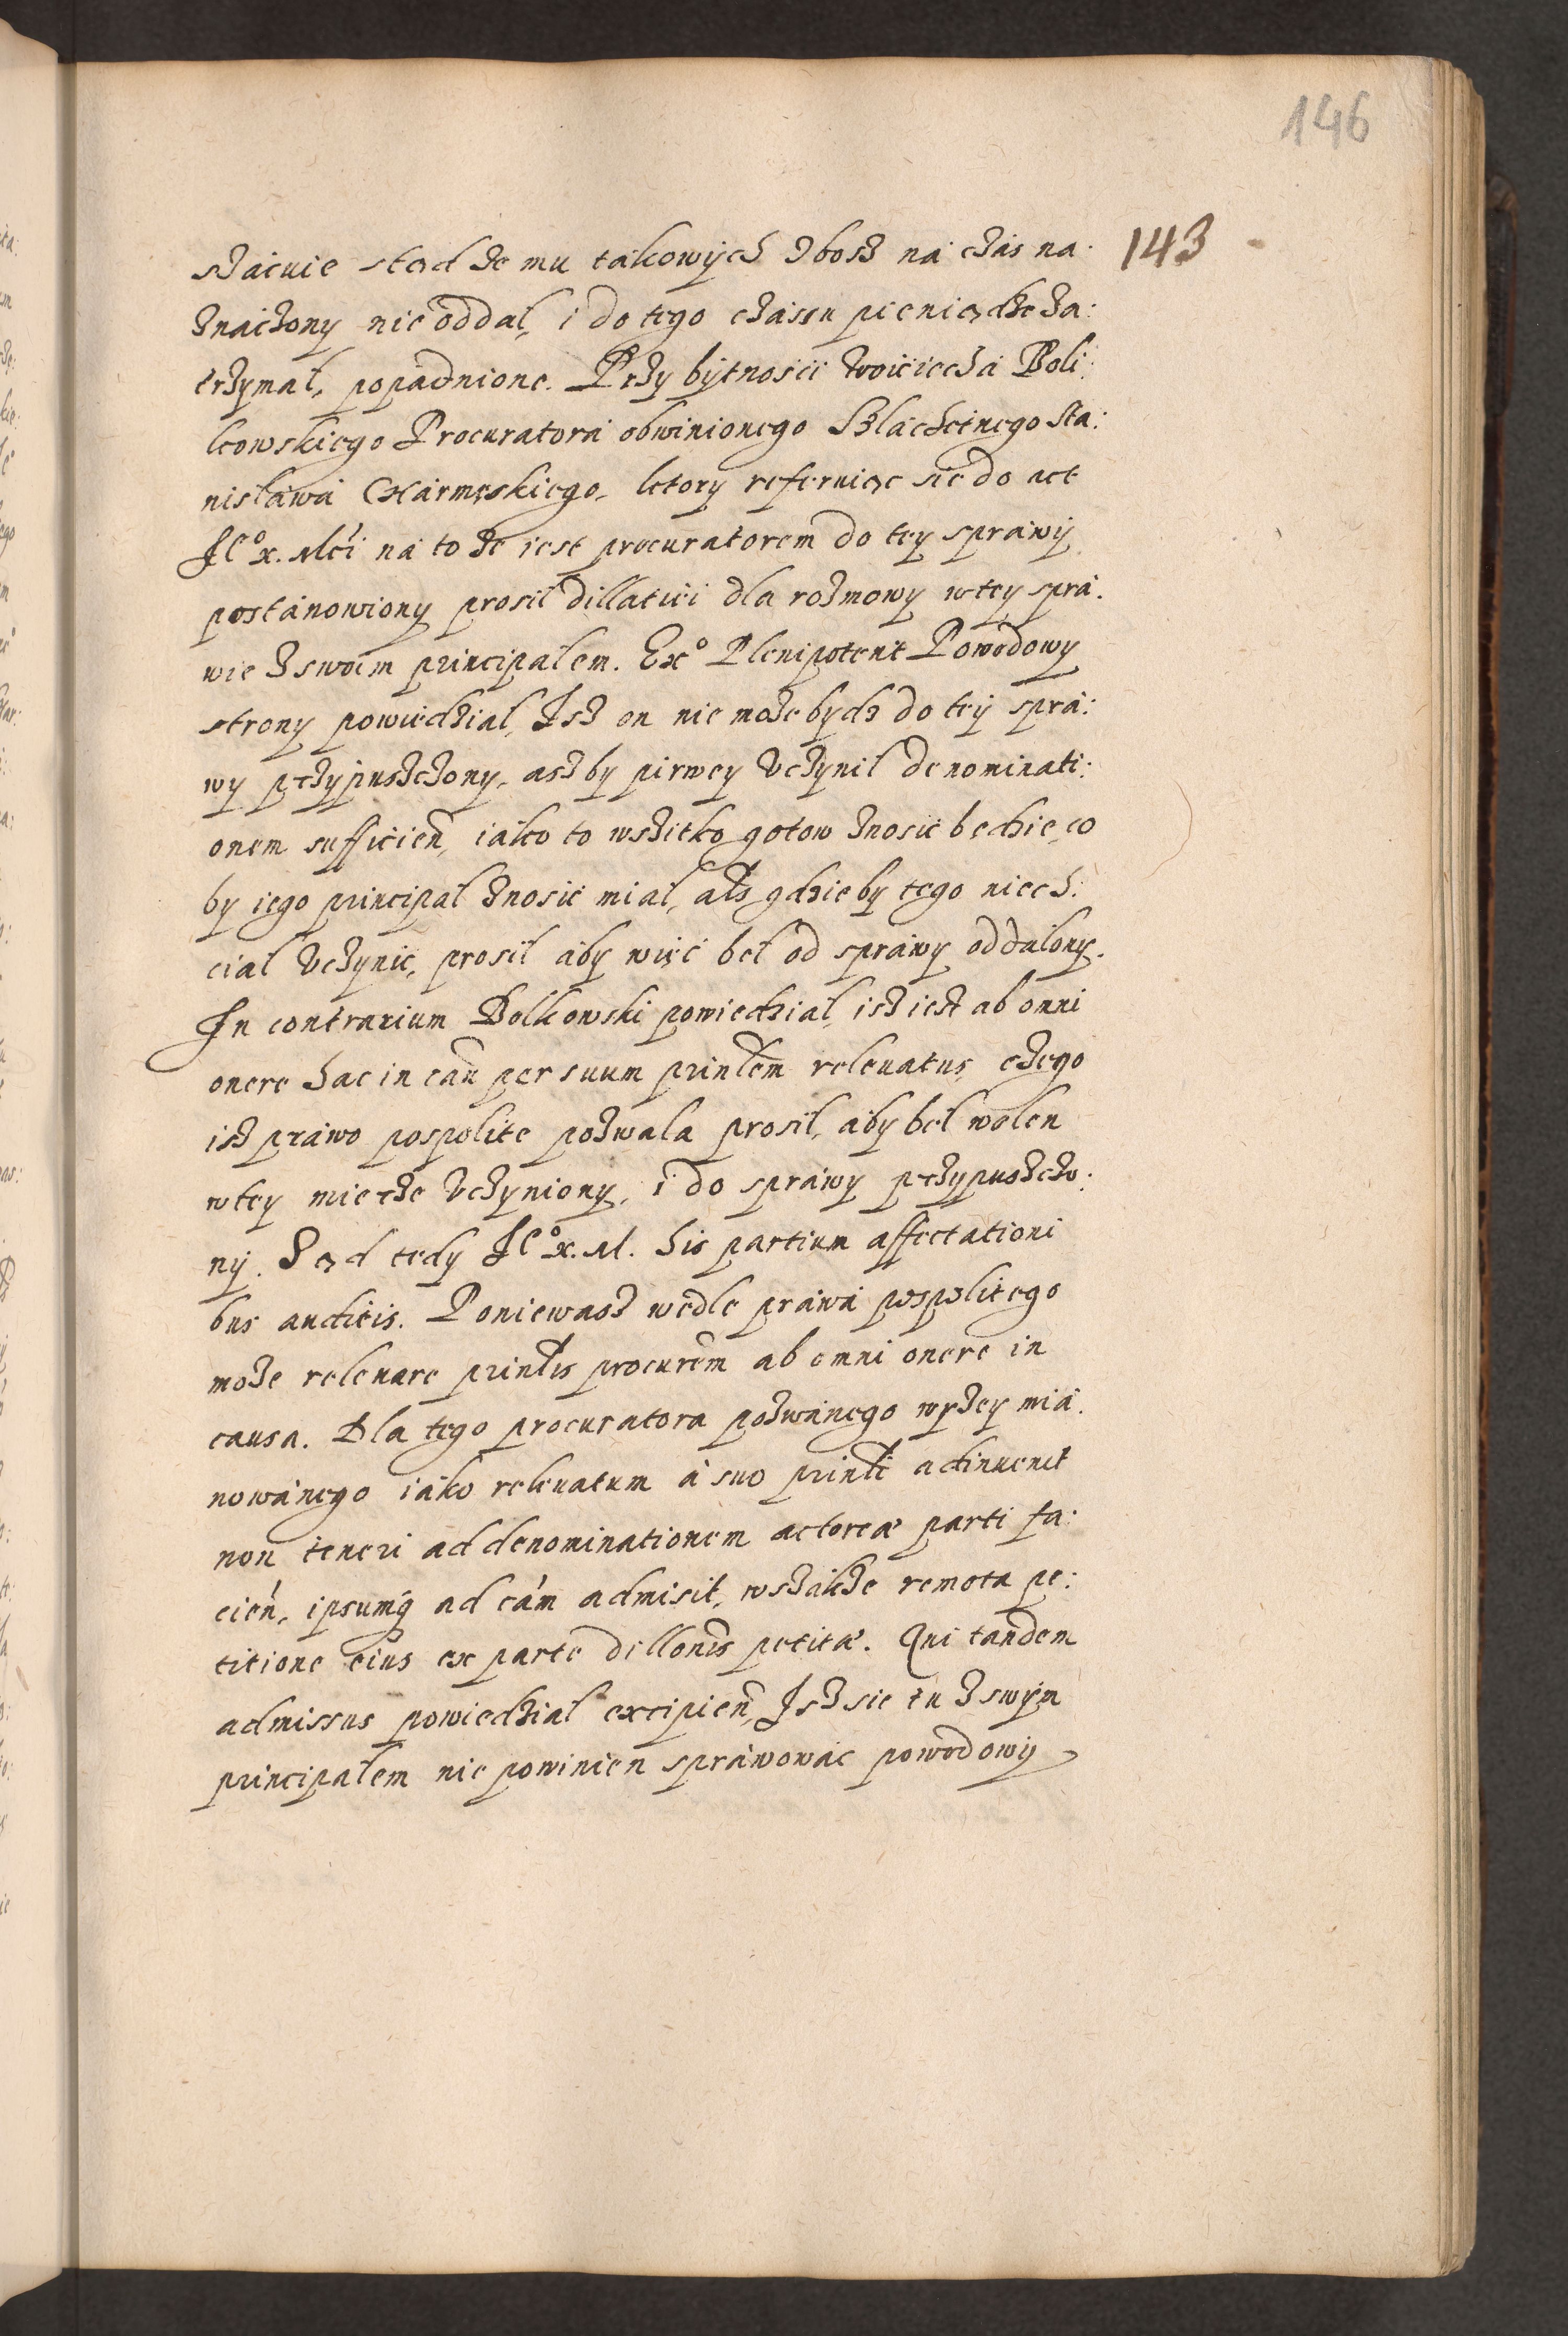 146
143
szacuie stąd że mu takowych zbosz na czás na:
znaczony nie oddal, i do tego czássu pieniądze za:
trzymal, popádnione. Przy bytnoscii Woiciecha Bol:
kowskiego Procuratora obwinionego Szlachetnego Sta:
nisláwá Czármęskiego, ktory referuiąc sie do act
Je° x. Mći ná to że iest procuratorem do tey spráwy
postánowiony prosil dillatiei dla rozmowy w tey sprá:
wie z swoim principalem. Ex° Plenipotent Powodowy
strony powiedzial, Jsz on nie może bydz do tey sprá:
wy przypuszczony, aszby pirwey vczynil denominati:
onem sufficien, iáko to wszitko gotow znosic bedzie, co
by iego principal znosic mial, als gdzieby tego niech:
cial vczynic, prosil áby wiec bel od spráwy oddalony.
Jn contrarium Bolkowski powiedzial, isz iest ab omni
onere hac in cau per suum prinlem releuatus, czego
isz práwo pospolite pozwala prosil, áby bel wolen
w tey mierze vczyniony, i do spráwy przypuszczo:
ny. Sąd tedy Je° x. M. his partium affectationi
bus auditis. Poniewasz wedle práwá pospolitego
może releuare prinlis procurem ab omni onere in
causa. Dla tego procuratora pozwánego wyżey miá:
nowánego iáko releuatum á suo prinli adinuenit
non teneri ad denominationem actoreæ parti fa:
cien, ipsumq ad cám admisit, wszákże remota pe:
titione eius ex parte dillonis petitæ. Qui tandem
admissus powiedzial excipien, Jsz sie tu z swym
principalem nie powinien spráwowác powodowy